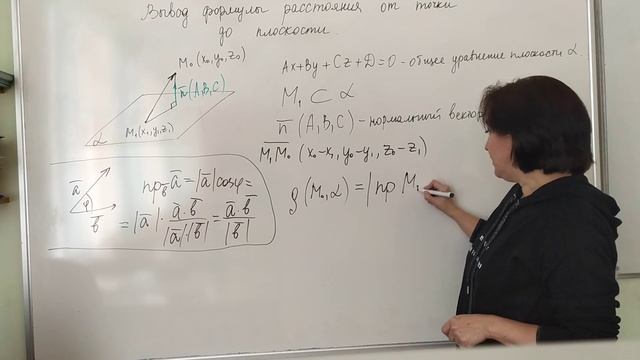 Вывод формулы расстояния от точки
до плоскости.
M₀(x₀,y₀,z₀)
n̄(A,B,C)
M₁(x₁,y₁,z₁)
α
Ax+By+Cz+D=0 - общее уравнение плоскости α.
M₁ ⊂ α
n̄ (A,B,C) - нормальный вектор
M₁M₀ (x₀-x₁, y₀-y₁, z₀-z₁)
ρ (M₀,α) = | пр M₁
ā
φ
b̄
пр_b̄ ā = |ā| cosφ =
= |ā| · ā·b̄ / |ā|·|b̄| = ā·b̄ / |b̄|